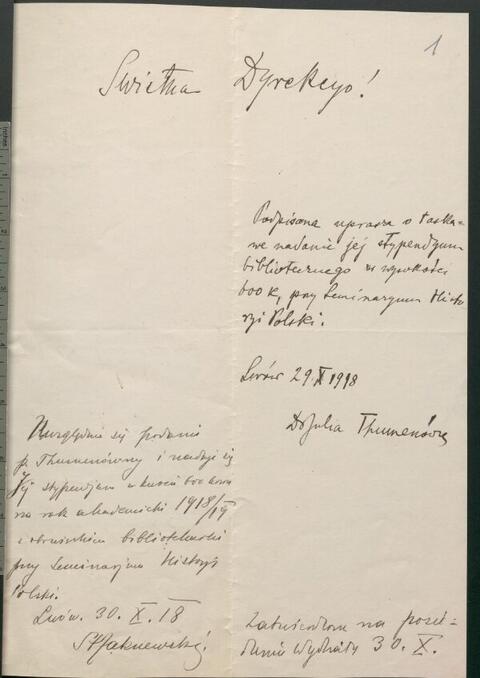 1
Swietna Dyrekcyo!
Podpisana uprasza o łaska-
we nadanie jej stypendyum
bibliotecznego w wysokości
600 K, przy Seminaryum Histo
ryi Polski.
Lwów 29.X 1918
Dr Julia Thumenówna
Uwzględnia się podanie
p. Thumenówny i nadaje się
Jej stypendjum w kwocie 600 koron
na rok akademicki 1918/19
z obowiązkiem bibliotekarki
przy Seminarjum Historji
Polski.
Lwów. 30. X. 18
St. Zakrzewski.
Zatwierdzono na posie-
dzeniu Wydziału 30. X.